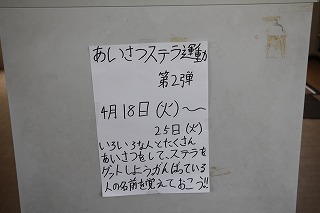 あいさつステラ運動
第2弾
4月18日(火)〜
25日(火)
いろいろな人とたくさん
あいさつをして、ステラを
ゲットしようがんばっている
人の名前を覚えておこう!!